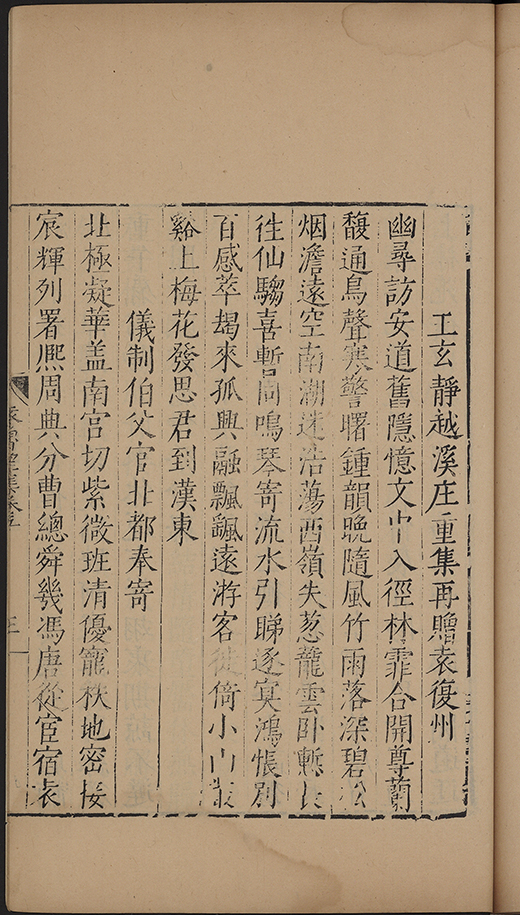 王玄靜越溪庄重集再贈袁復州
幽尋訪安道舊隱憶文中入徑林霏合開尊蘭
馥通鳥聲寒警曙鍾韻晚隨風竹雨落深碧松
烟澹遠空南潮迷浩蕩西嶺失葱蘢雲卧慙長
徃仙騶喜暫同鳴琴寄流水引睇逐冥鴻悵別
百感萃朅來孤興融飄飄遠游客徙倚小山叢
谿上梅花發思君到漢東
儀制伯父官北都奉寄
北極凝華盖南宫切紫微班清優寵秩地密接
宸輝列署熈周典分曹總舜幾馮唐從宦宿袁